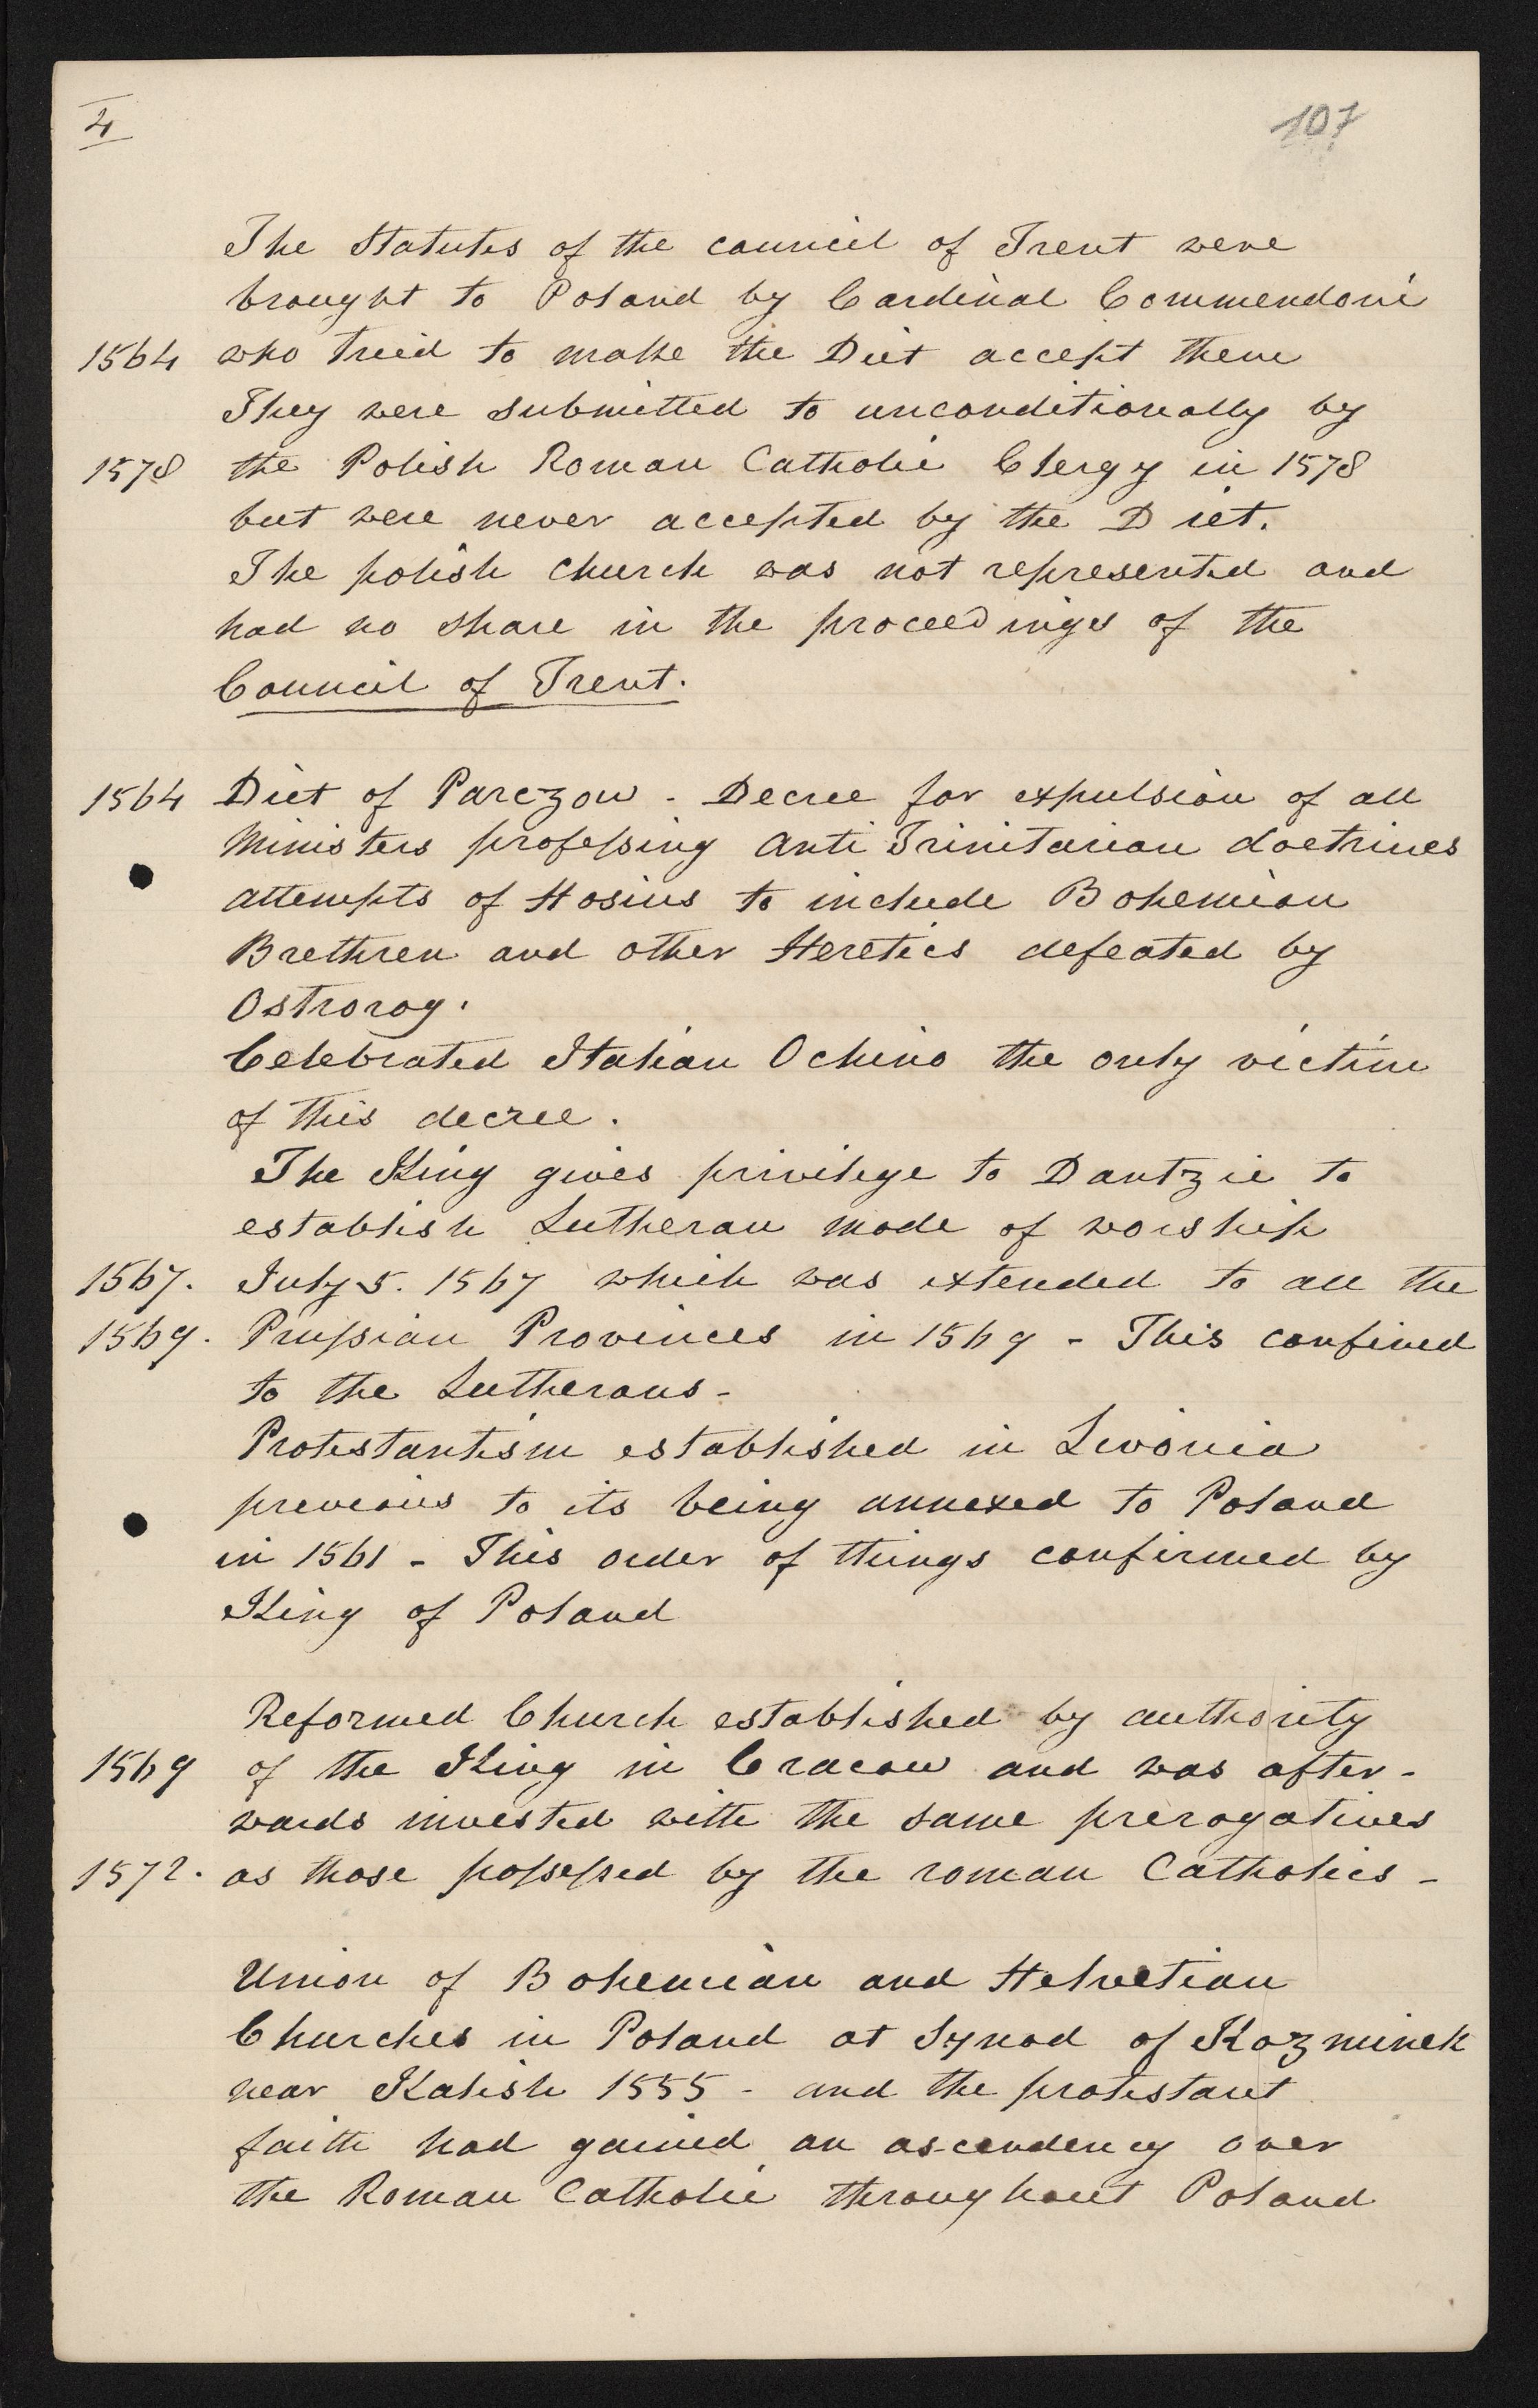 4
107
The Statutes of the council of Trent were
brought to Poland by Cardinal Commendoni
1564 who tried to make the Diet accept them
They were submitted to unconditionally by
1578 the Polish Roman Catholic Clergy in 1578
but were never accepted by the Diet.
The polish church was not represented and
had no share in the proceedings of the
Council of Trent.
1564 Diet of Parczow - Decree for expulsion of all
Ministers professing Anti Trinitarian doctrines
attempts of Hosius to include Bohemian
Brethren and other Heretics defeated by
Ostrorog.
Celebrated Italian Ochino the only victim
of this decree.
The King gives privilege to Dantzic to
establish Lutheran mode of worship
1567. July 5. 1567 which was extended to all the
1569. Prussian Provinces in 1569 - This confined
to the Lutherans -
Protestantism established in Livonia
previous to its being annexed to Poland
in 1561 - This order of things confirmed by
King of Poland
Reformed Church established by authority
1569 of the King in Cracow and was after-
wards invested with the same prerogatives
1572. as those possessed by the roman Catholics -
Union of Bohemian and Helvetian
Churches in Poland at Synod of Kozminek
near Kalish 1555 - and the protestant
faith had gained an ascendency over
the Roman Catholic throughout Poland